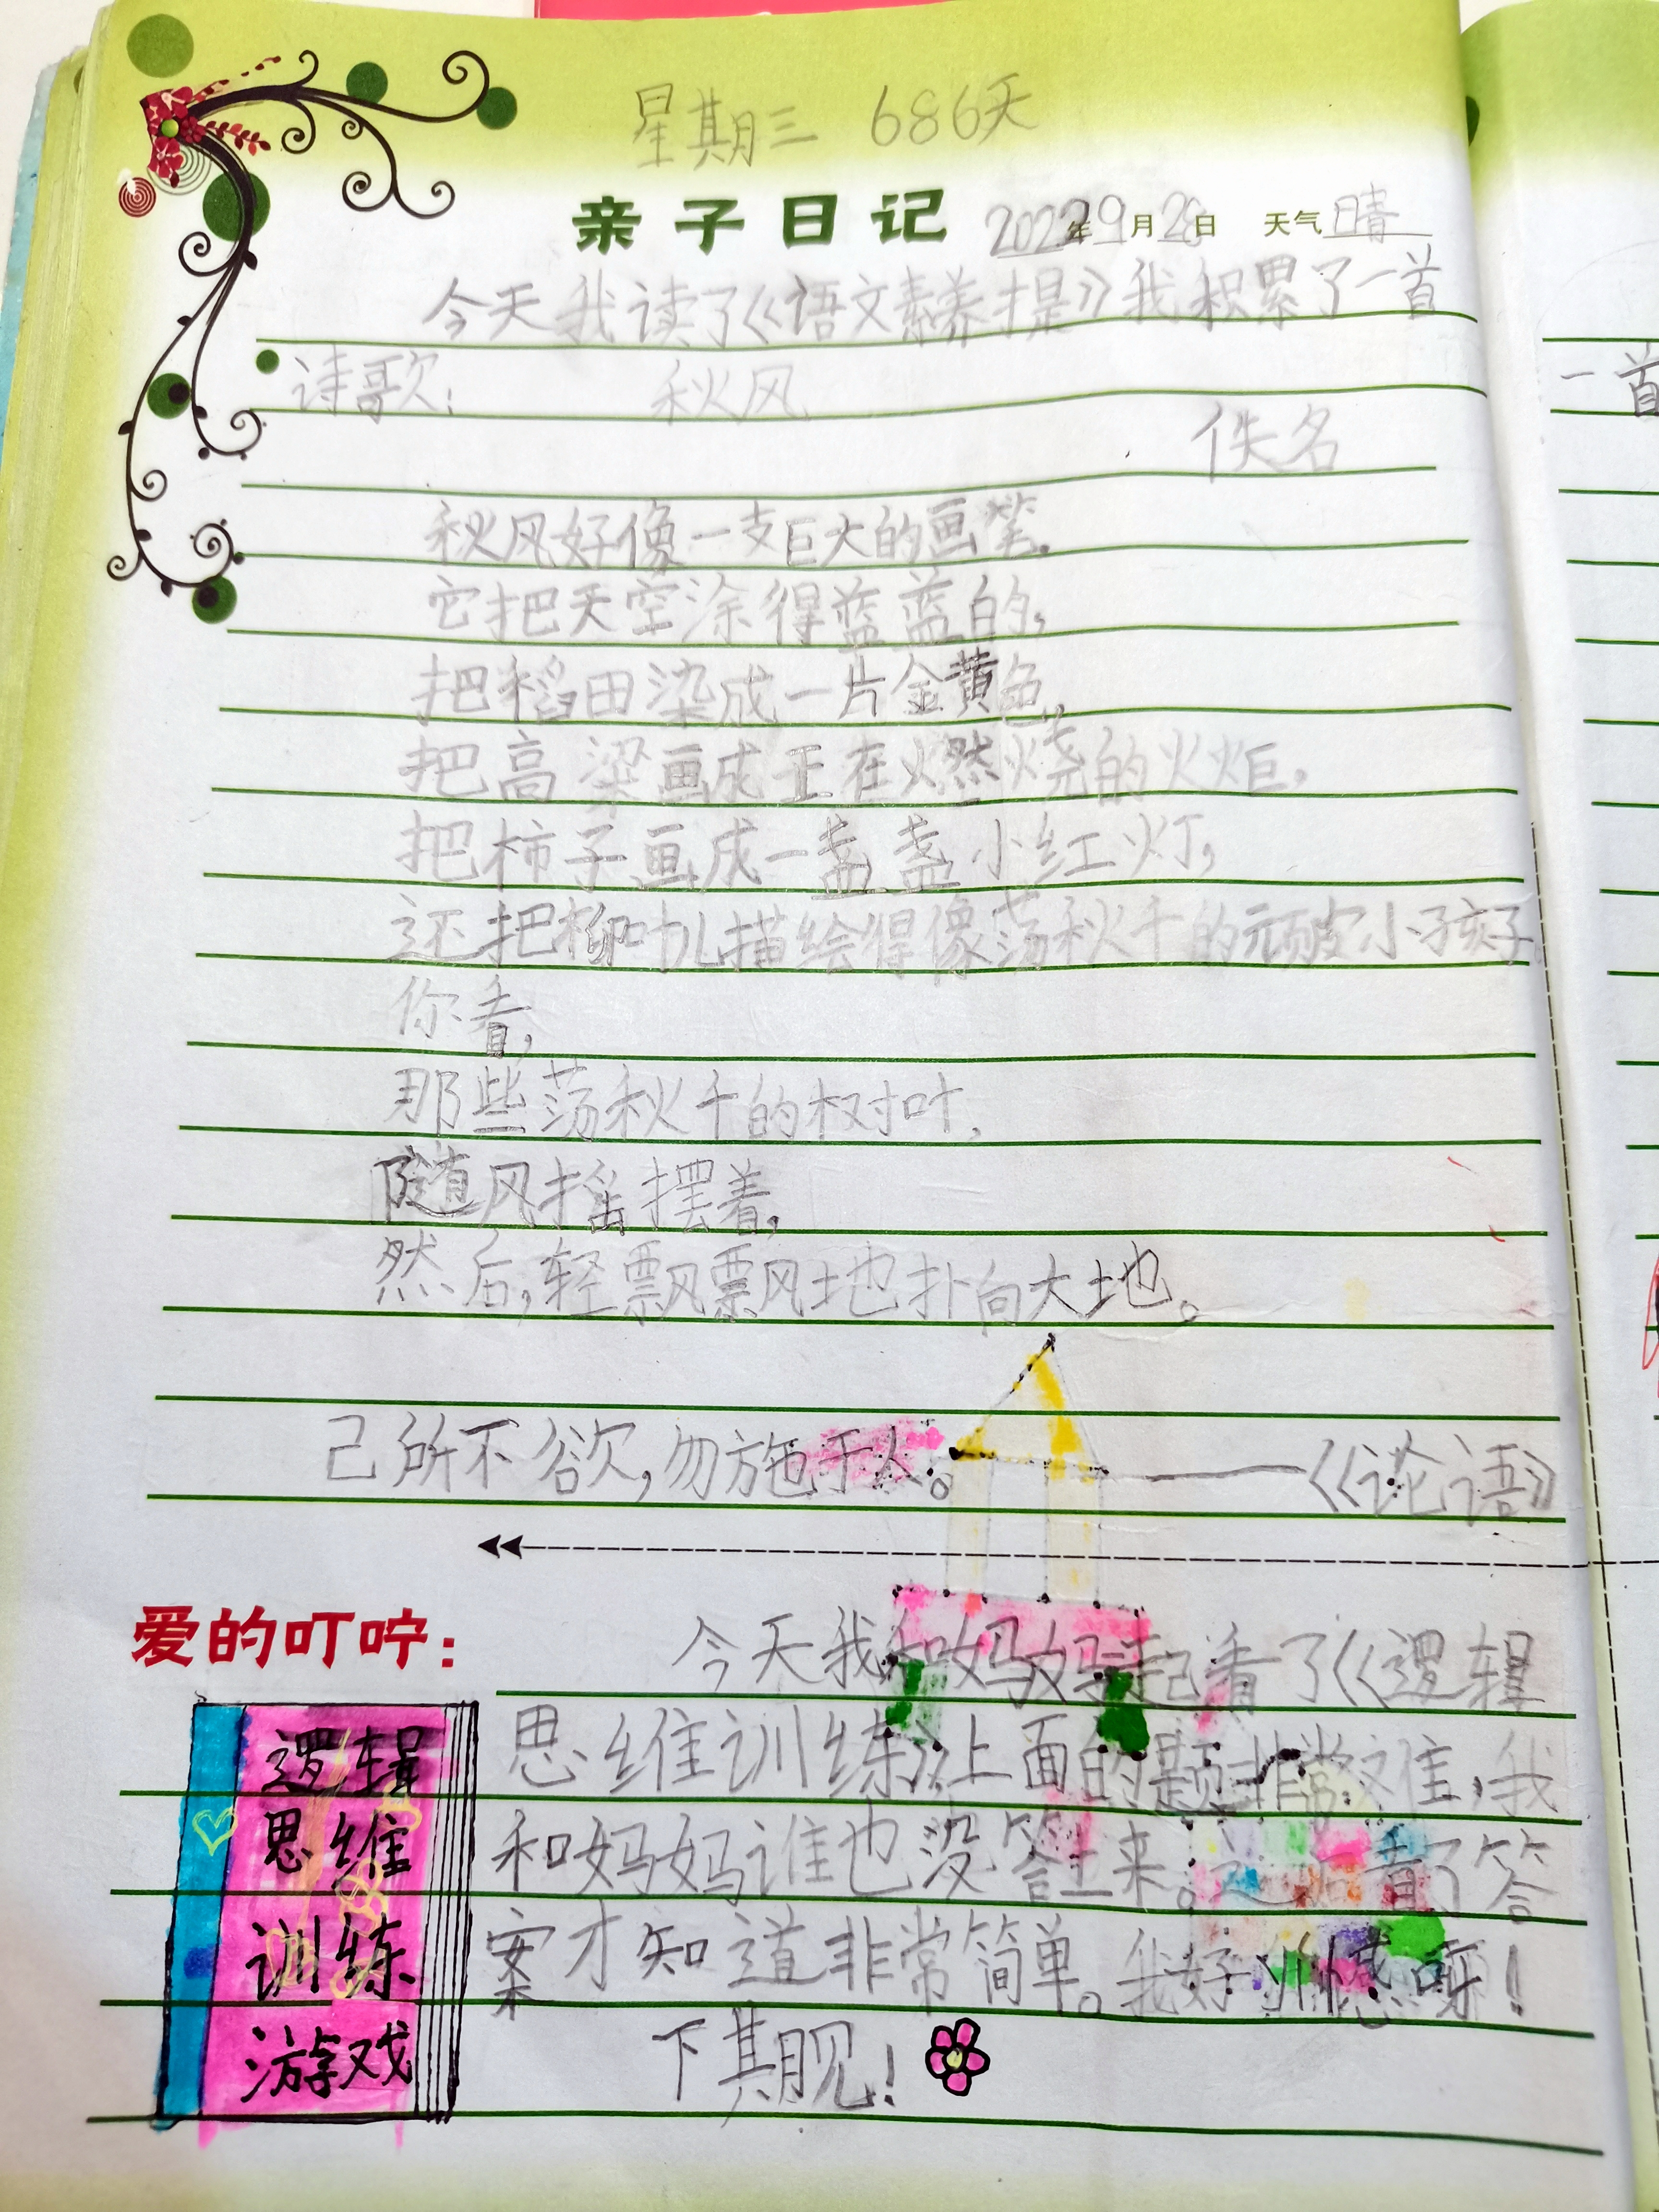 星期三 686天
亲子日记 2022年9月28日 天气晴
今天我读了《语文素养提》我积累了一首
诗歌: 秋风
佚名
秋风好像一支巨大的画笔,
它把天空涂得蓝蓝的,
把稻田染成一片金黄色,
把高粱画成正在燃烧的火炬,
把柿子画成一盏盏小红灯,
还把柳叶儿描绘得像荡秋千的顽皮小孩子
你看,
那些荡秋千的树叶,
随风摇摆着,
然后,轻飘飘地扑向大地。
己所不欲,勿施于人。——《论语》
爱的叮咛:
今天我和妈妈一起看了《逻辑
思维训练》上面的题非常难,我
和妈妈谁也没答上来。看了答
案才知道非常简单。我好惭愧呀!
下期见!
逻辑
思维
训练
游戏
一首